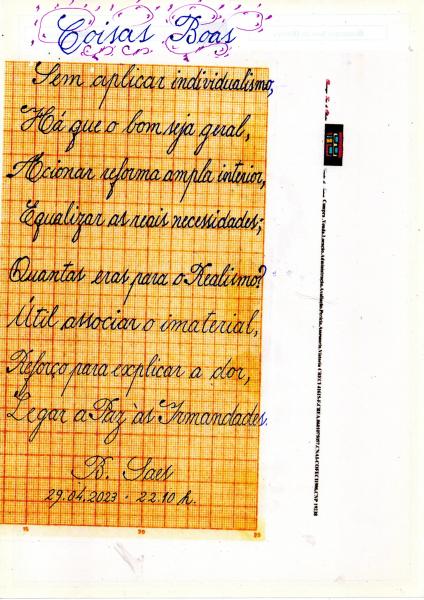 Coisas Boas
Sem aplicar individualismo,
Há que o bom seja geral,
Acionar reforma ampla interior,
Equalizar as reais necessidades;
Quantas eras para o Realismo?
Útil associar o imaterial,
Reforço para explicar a dor,
Legar a Paz às Irmandades.
B. Saes
29.04.2023 - 22.10 h.
15 20 25